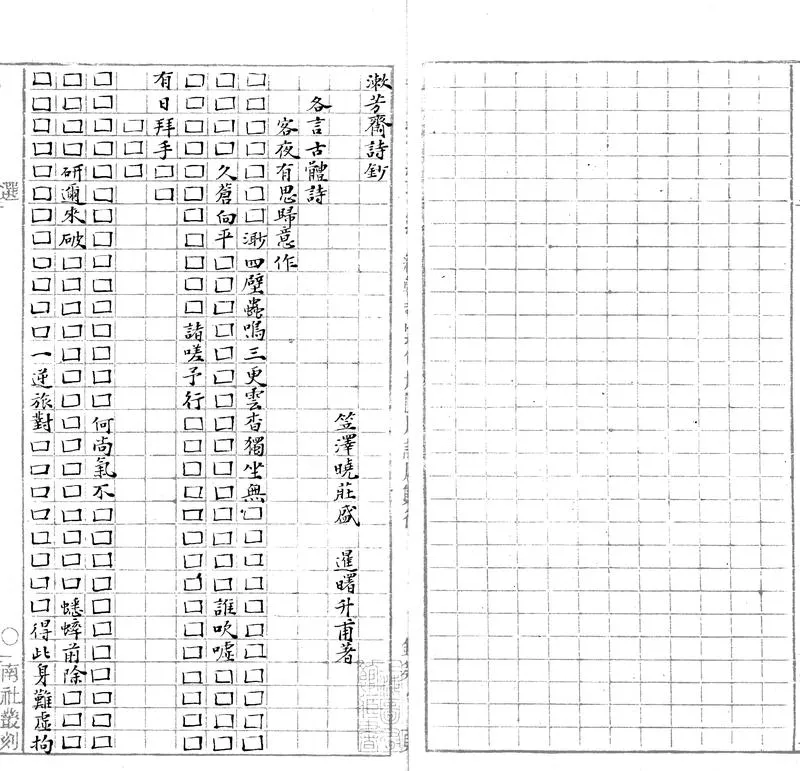 漱芳齋詩鈔
笠澤曉莊盛 暹曙升甫著
各言古體詩
客夜有思歸意作
□□□□□□□渺四壁蟲鳴三更雲杳獨坐無□□□□□□□□□□□
□□□□久蒼向平□□□□□□□□□□□□□□□誰吹噓□□□□
□□□□□□□□□□□諸嗟予行□□□□□□□□□□□□□□□
有日拜手□□
□□□
□□□□□□□□□□□□□□□何尚氣不□□□□□□□□□□□
□□□□研邇來破□□□□□□□□□□□□□□□蟋蟀前除□□□
□□□□□□□□□□□□一逆旅對□□□□□□□□得此身難虛拘
選 〇一 南社叢刻